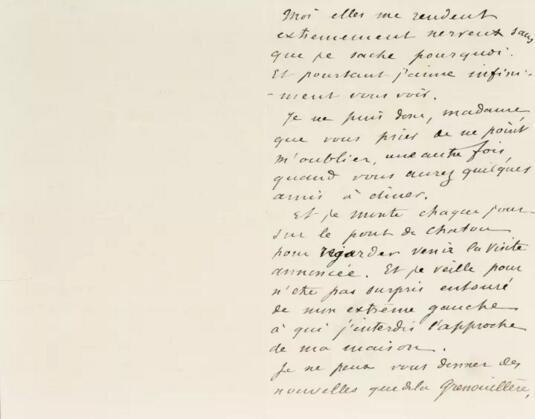 Moi elles me rendent
extremement nerveux sans
que je sache pourquoi.
Et pourtant j'aime infini-
-ment vous voir.
Je ne puis donc, madame,
que vous prier de ne point
m'oublier, une autre fois,
quand vous aurez quelques
amis à diner.
Et je monte chaque jour
sur le pont de Chatou
pour regarder venir la visite
annoncée. Et je veille pour
n'etre pas surpris entouré
de mon extrême gauche
à qui j'interdis l'approche
de ma maison.
Je ne peux vous donner des
nouvelles que de la Grenouillère,